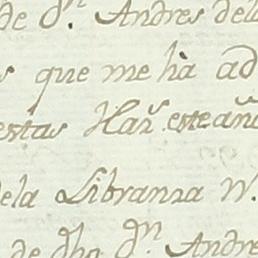 de D.ⁿ Andres del
que me hà ad
estas Haz.ˢ este año
dela Libranza N.
de dho D.ⁿ Andre